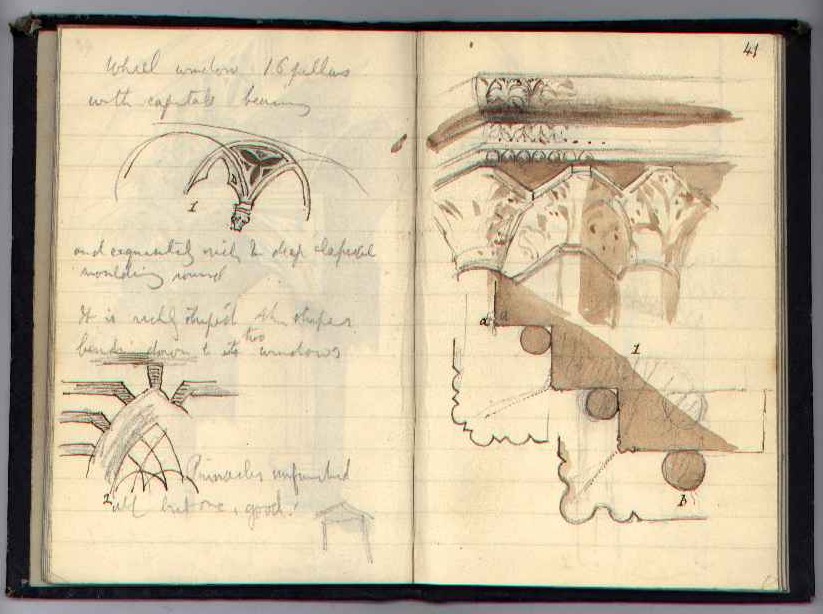 Wheel window 16 pillars
with capitals bearing
1
and exquisitely rich & deep
moulding round
It is richly striped the stripes
bending down to its two windows
2
Pinnacles unfinished
all but one, good.
41
a a
1
B